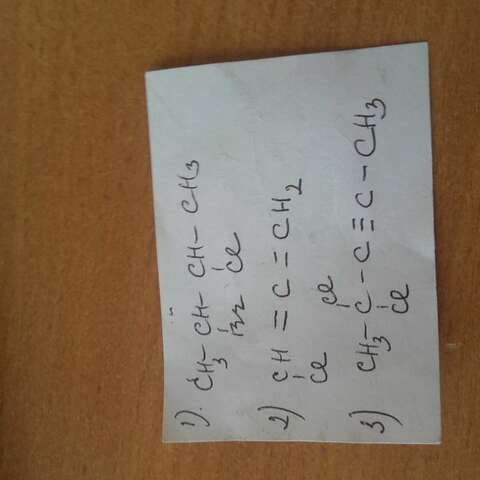 1). CH3-CH-CH-CH3
Br Cl
2) CH=C=CH2
Cl
Cl
3) CH3-C-C≡C-CH3
Cl